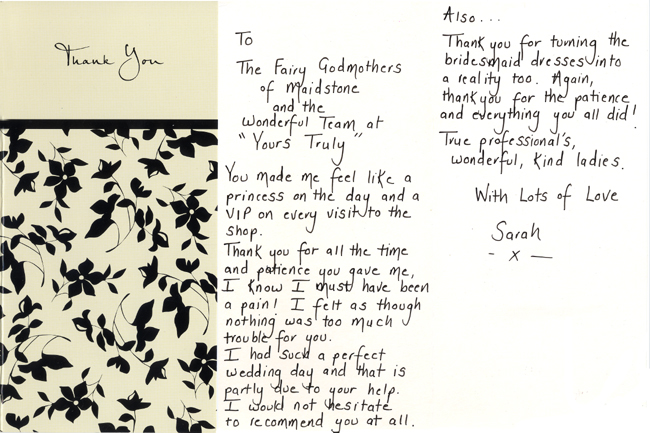 Thank You
To
The Fairy Godmothers
of Maidstone
and the
wonderful Team at
"Yours Truly"
You made me feel like a
princess on the day and a
VIP on every visit to the
shop.
Thank you for all the time
and patience you gave me,
I know I must have been
a pain! I felt as though
nothing was too much
trouble for you.
I had such a perfect
wedding day and that is
partly due to your help.
I would not hesitate
to recommend you at all.
Also...
Thank you for turning the
bridesmaid dresses into
a reality too. Again,
thank you for the patience
and everything you all did!
True professional's,
wonderful, kind ladies.
With Lots of Love
Sarah
- x —